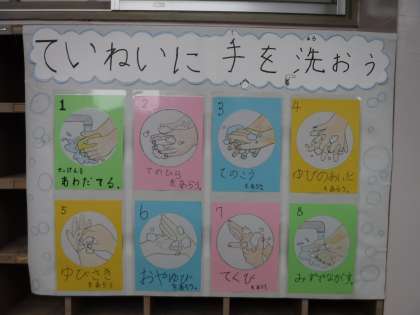 ていねいに手を洗おう
あら
1
せっけんを
あわだてる。
2
てのひら
をあらう。
3
てのこう
をあらう。
4
ゆびのあいだ
をあらう。
5
ゆびさき
をあらう。
6
おやゆび
をあらう。
7
てくび
をあらう。
8
みずでながす。